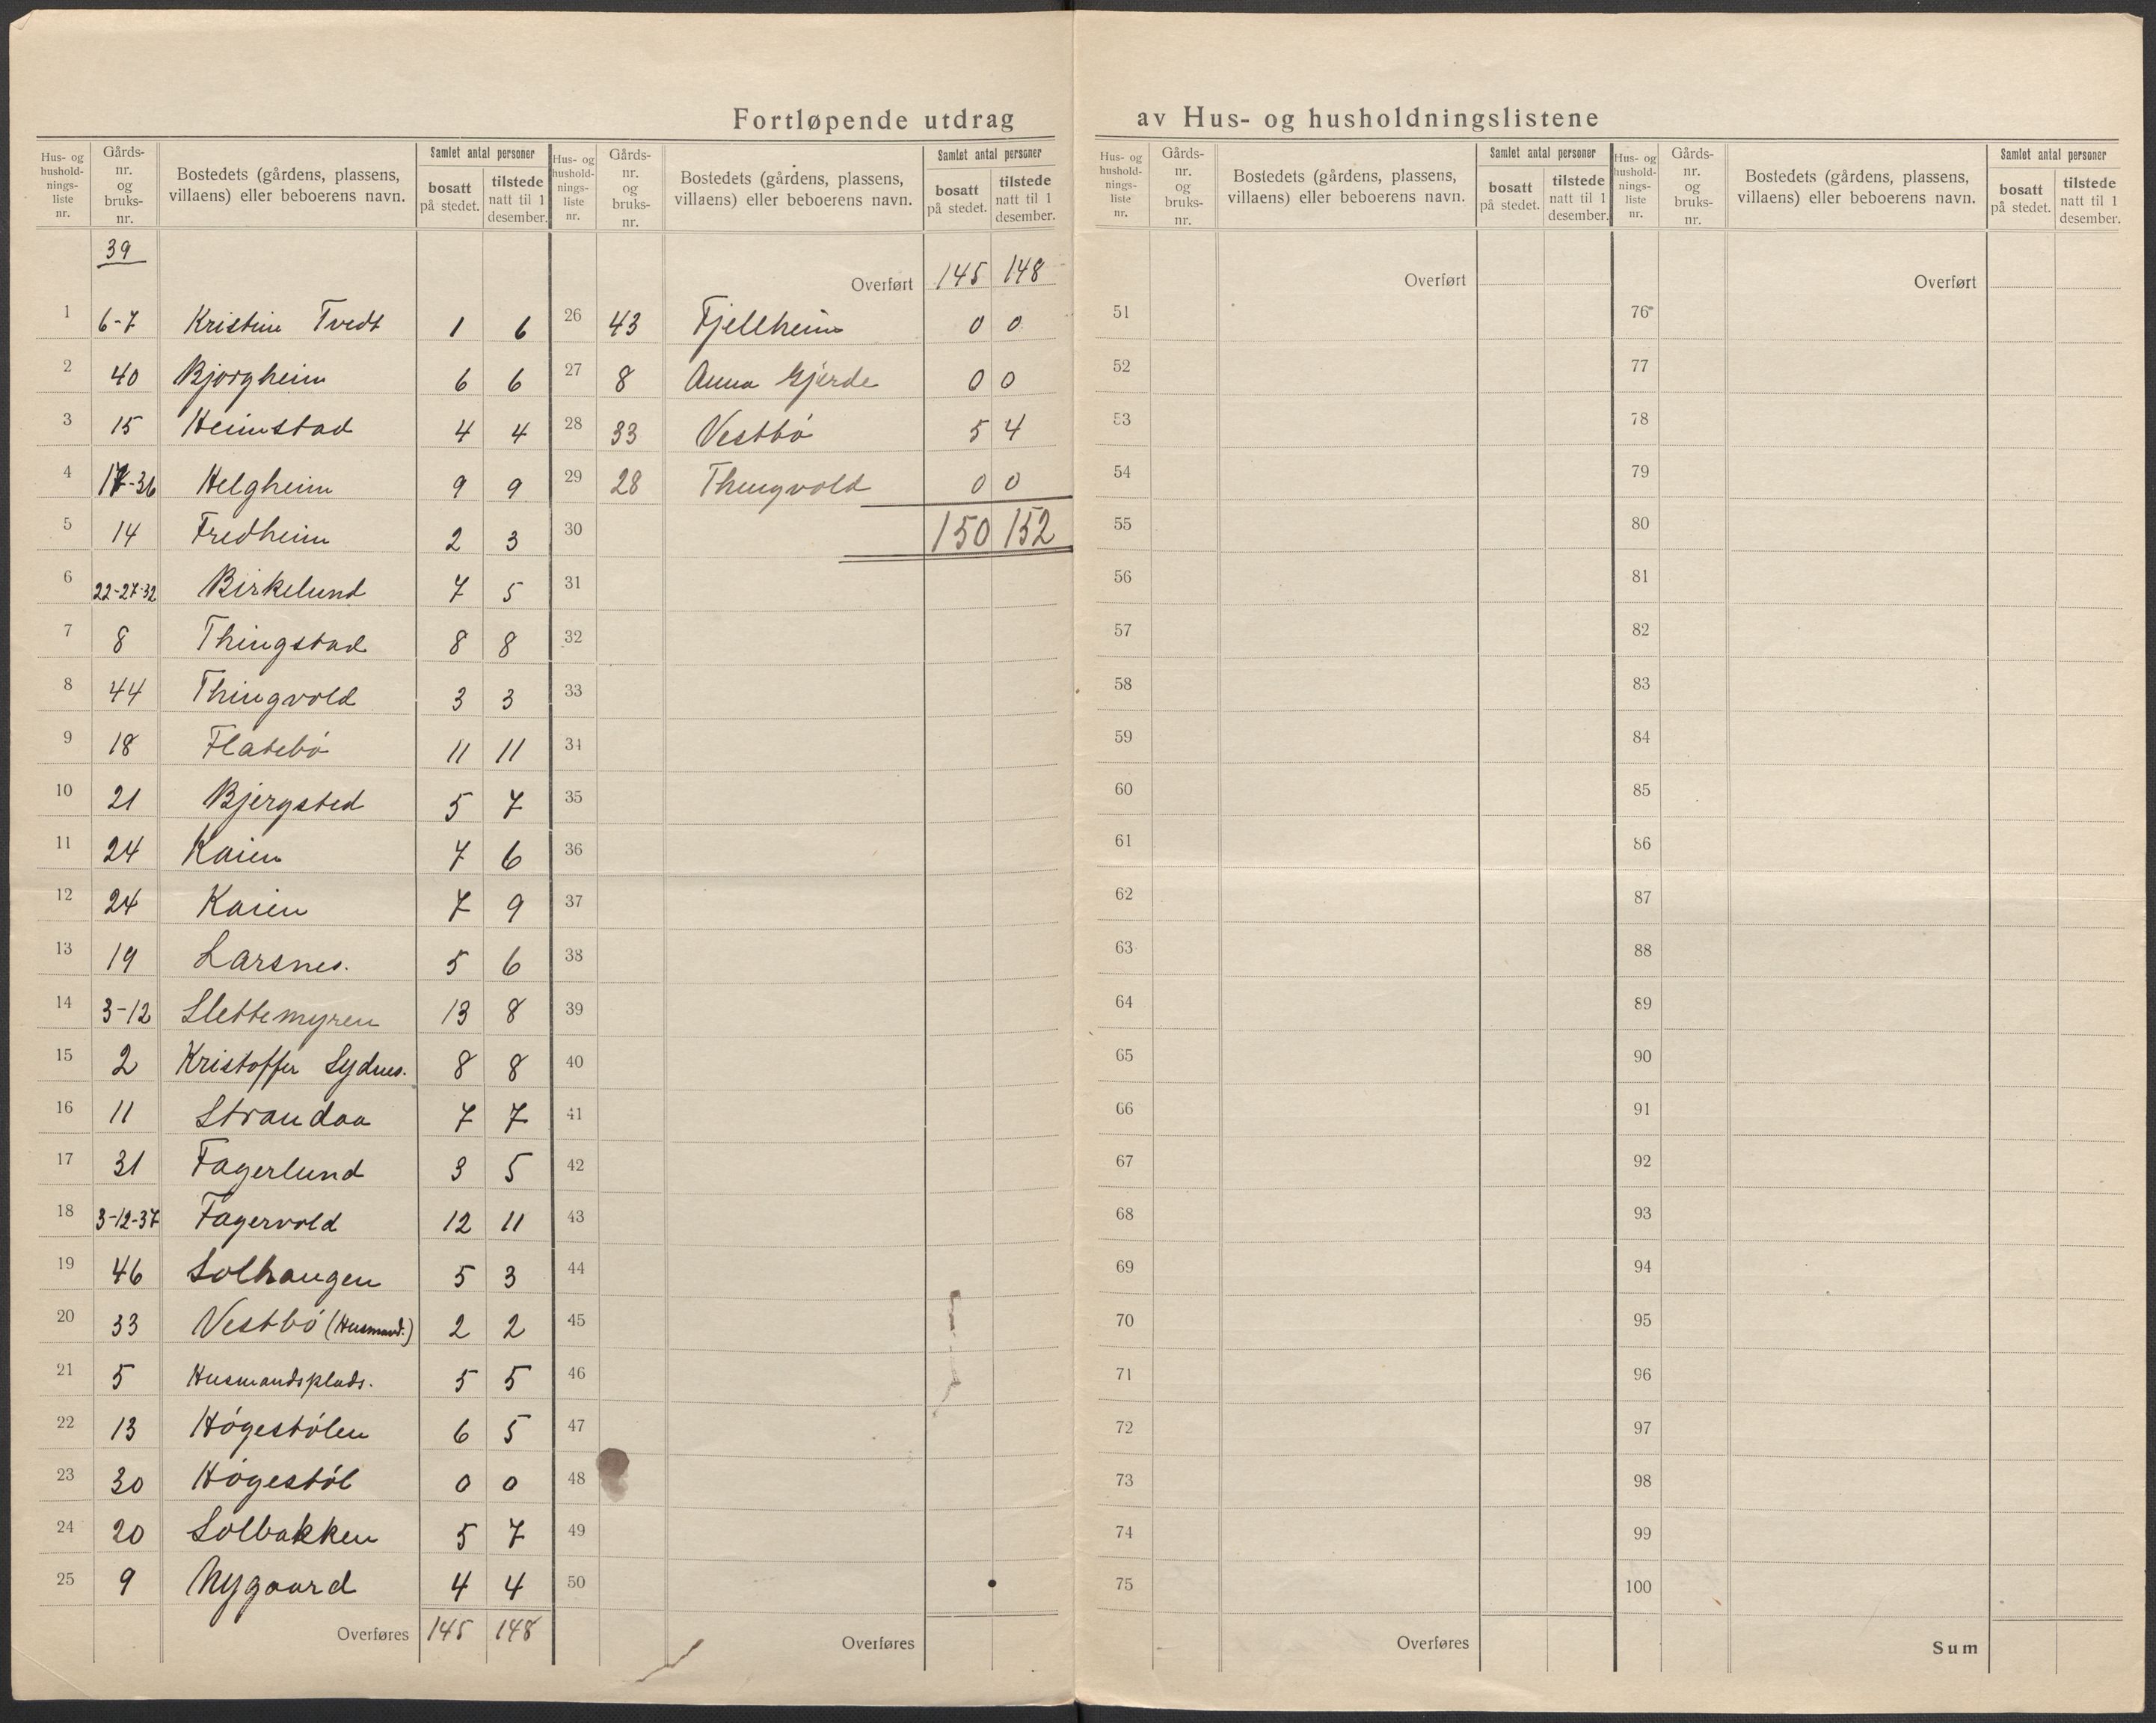 Fortløpende utdrag av Hus- og husholdningslistene
Hus- og husholdningsliste nr. | Gårds- nr. og bruks- nr. | Bostedets (gårdens, plassens, villaens) eller beboerens navn. | Samlet antal personer | bosatt på stedet. | tilstede natt til 1 desember.
39
1 6-7 Kristine Tvedt 1 6
2 40 Bjorgheim 6 6
3 15 Heimstad 4 4
4 17-36 Helgheim 9 9
5 14 Fredheim 2 3
6 22-27-32 Birkelund 7 5
7 8 Thingstad 8 8
8 44 Thingvold 3 3
9 18 Flatebö 11 11
10 21 Bjergsted 5 7
11 24 Kaien 7 6
12 24 Kaien 7 9
13 19 Larsnes. 5 6
14 3-12 Slettemyren 13 8
15 2 Kristoffer Sydnes. 8 8
16 11 Strandaa 7 7
17 31 Fagerlund 3 5
18 3-12-37 Fagervold 12 11
19 46 Solhaugen 5 3
20 33 Vestbö (Husmand.) 2 2
21 5 Husmandsplads. 5 5
22 13 Högestölen 6 5
23 30 Högestöl 0 0
24 20 Solbakken 5 7
25 9 Nygaard 4 4
Overføres 145 148
Hus- og husholdningsliste nr. | Gårds- nr. og bruks- nr. | Bostedets (gårdens, plassens, villaens) eller beboerens navn. | Samlet antal personer | bosatt på stedet. | tilstede natt til 1 desember.
Overført 145 148
26 43 Fjellheim 0 0
27 8 Anna Gjerde 0 0
28 33 Vestbö 5 4
29 28 Thingvold 0 0
30 150 152
31
32
33
34
35
36
37
38
39
40
41
42
43
44
45
46
47
48
49
50
Overføres
Hus- og husholdnings- liste nr. | Gårds- nr. og bruks- nr. | Bostedets (gårdens, plassens, villaens) eller beboerens navn. | Samlet antal personer | bosatt på stedet. | tilstede natt til 1 desember.
Overført
51
52
53
54
55
56
57
58
59
60
61
62
63
64
65
66
67
68
69
70
71
72
73
74
75
Overføres
Hus- og husholdnings- liste nr. | Gårds- nr. og bruks- nr. | Bostedets (gårdens, plassens, villaens) eller beboerens navn. | Samlet antal personer | bosatt på stedet. | tilstede natt til 1 desember.
Overført
76
77
78
79
80
81
82
83
84
85
86
87
88
89
90
91
92
93
94
95
96
97
98
99
100
Sum